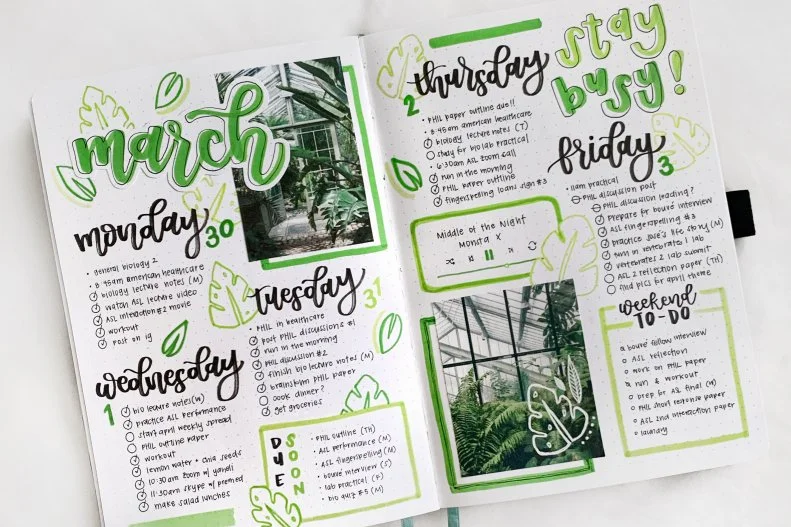 march
monday 30
general biology 2
8:45am american healthcare
biology lecture notes (M)
watch ASL lecture video
ASL interaction #2 movie
workout
post on ig
tuesday 31
PHIL in healthcare
post PHIL discussions #1
run in the morning
PHIL discussion #2
finish bio lecture notes (M)
brainstorm PHIL paper
cook dinner?
get groceries
wednesday 1
bio lecture notes (W)
practice ASL performance
start april weekly spread
PHIL outline paper
workout
lemon water + chia seeds
10:30am zoom w/ yandi
11:30am skype w/ premed
make salad lunches
DUE SOON
PHIL outline (TH)
ASL performance (M)
ASL fingerspelling (M)
bouvé interview (F)
lab practical (F)
bio quiz #5 (M)
2 thursday
PHIL paper outline due!!
8:45am american healthcare
biology lecture notes (T)
study for bio lab practical
6:30am ASL zoom call
run in the morning
PHIL paper outline
fingerspelling loans sign #3
Middle of the Night
Monsta X
stay
busy!
friday 3
11am practical
PHIL discussion post
PHIL discussion reading?
Prepare for bouvé interview
ASL fingerspelling #3
practice life story (M)
turn in vertebrates 1 lab
vertebrates 2 lab submit
ASL 2 reflection paper (TH)
find pics for april theme
weekend
TO-DO
bouvé follow interview
ASL reflection
work on PHIL paper
run & workout
prep for ASL final (M)
PHIL short response paper
ASL 2nd interaction paper
laundry